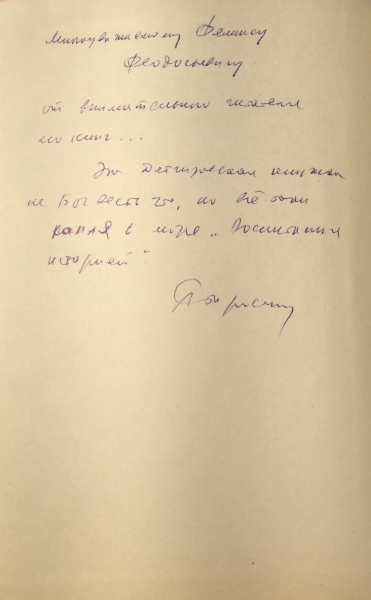 Многоуважаемому Феликсу
Феодосьевичу
от внимательного читателя
его книг...
Эта детгизовская книжка
не Бог весть что, но всё-таки
капля в море „Воспитания
историей“.